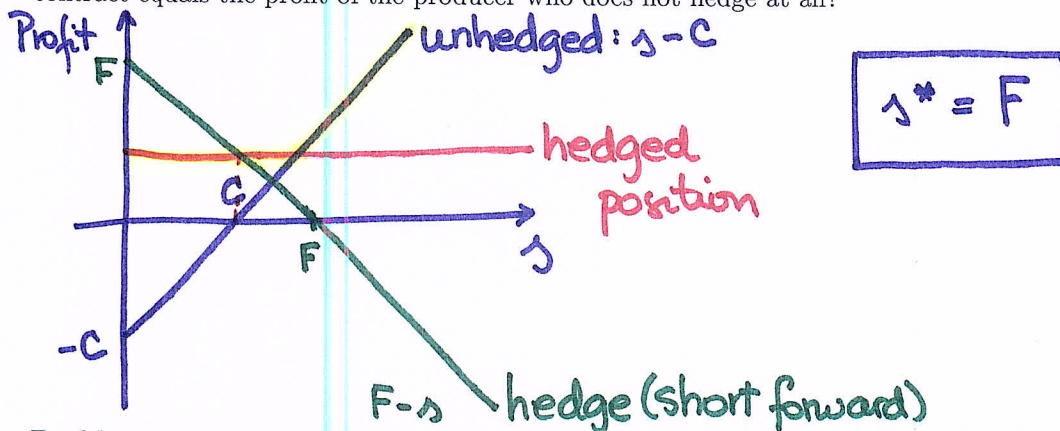 contract equals the profit of the producer who does not hedge at all?
Profit
unhedged: s-C
F
s* = F
hedged
position
C
F
s
-C
F-s
hedge (short forward)